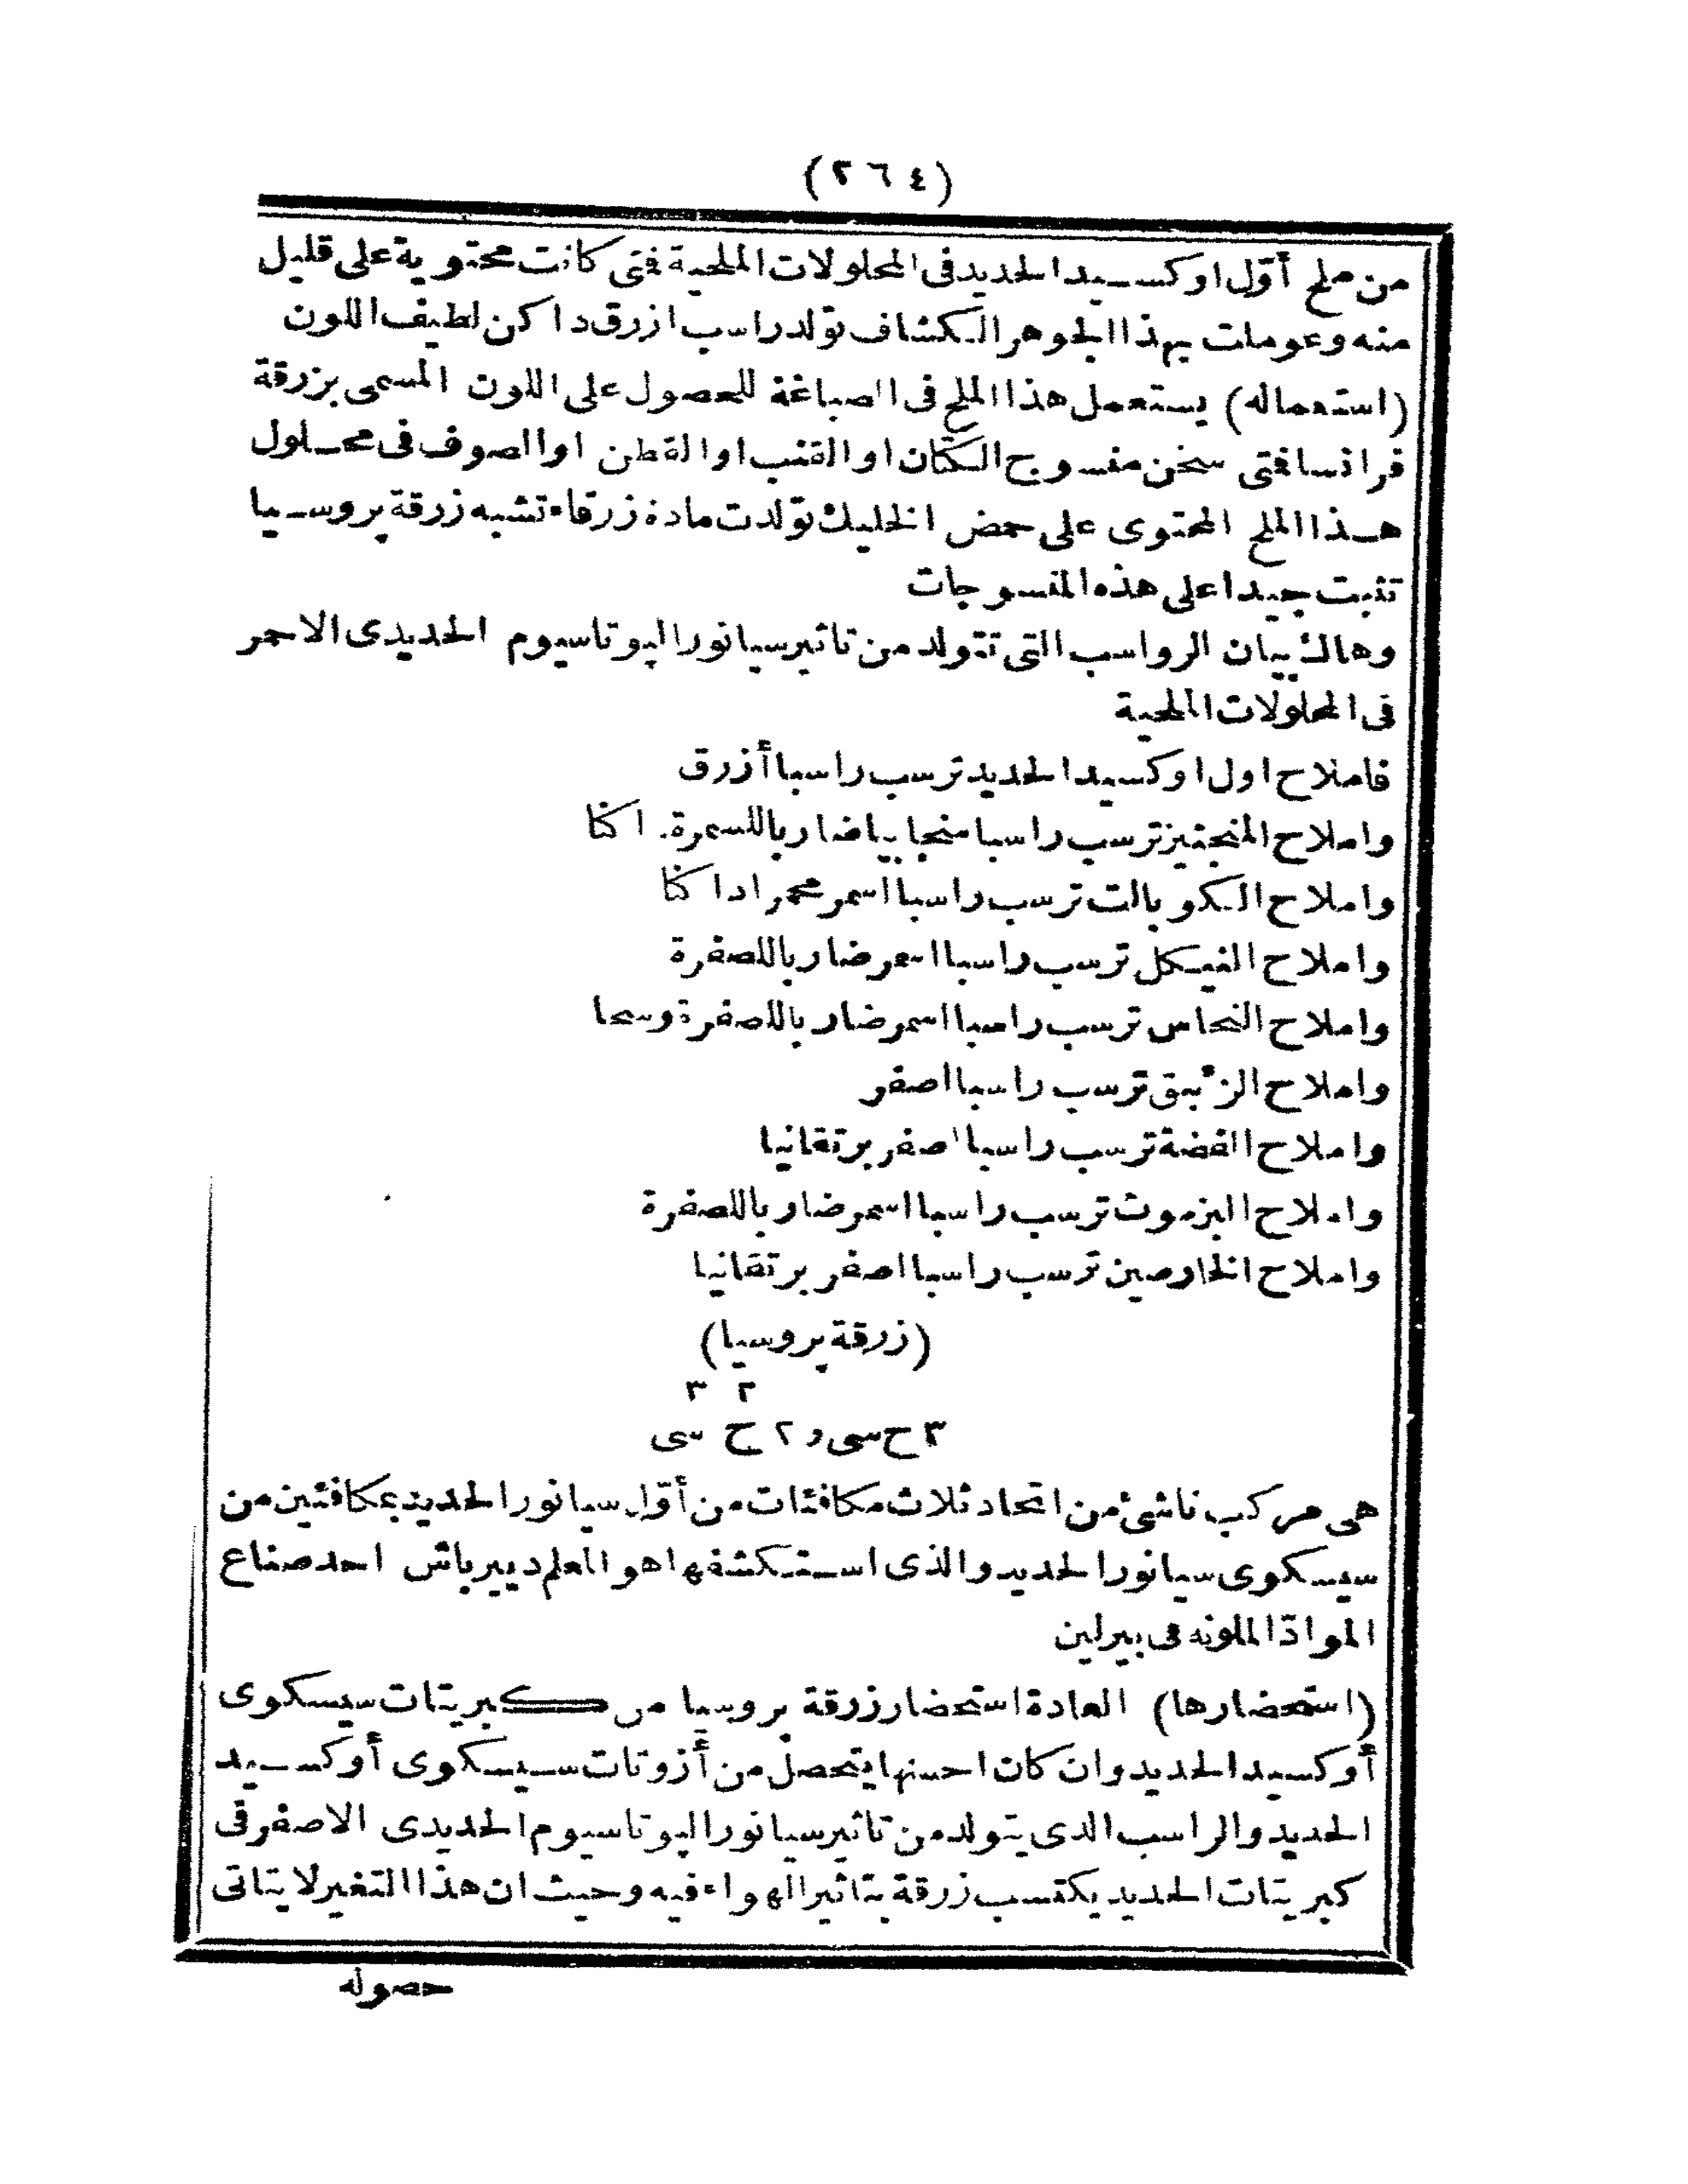 (٢٦٤)
من ملح أوّل اوكسيد الحديد فى المحلولات الملحية فتى كانت محتوية على قليل
منه وعوملت بهذا الجوهر الكشاف تولد راسب ازرق داكن لطيف اللون
(استعماله) يستعمل هذا الملح فى الصباغة للحصول على اللون المسمى بزرقة
فرانسا فتى سخن منسوج الكتان او القنب او القطن او الصوف فى محلول
هذا الملح المحتوى على حمض الخليك تولدت مادة زرقاء تشبه زرقة پروسيا
تثبت جيدا على هذه المنسوجات
وهاك بيان الرواسب التى تتولد من تاثير سيانور الپوتاسيوم الحديدى الاحمر
فى المحلولات الملحية
فاملاح اول اوكسيد الحديد ترسب راسبا أزرق
واملاح المنجنيز ترسب راسبا سنجابيا ضاربا للسمرة. اكنا
واملاح الكوبالت ترسب راسبا اسمر محمرا داكنا
واملاح النيكل ترسب راسبا اسمر ضاربا للصفرة
واملاح النحاس ترسب راسبا اسمر ضاربا للصفرة وسخا
واملاح الزئبق ترسب راسبا اصفر
واملاح الفضة ترسب راسبا اصفر برتقانيا
واملاح البزموت ترسب راسبا اسمر ضاربا للصفرة
واملاح الخارصين ترسب راسبا اصفر برتقانيا
(زرقة پروسيا)
٢ ٣
٣ ح سى و ٢ ح سى
هى مركب ناشئ من اتحاد ثلاث مكافئات من أوّل سيانور الحديد بمكافئين من
سيسكوى سيانور الحديد والذى استكشفها هو المعلم دييرباش احد صناع
الموادّ الملونه فى بيرلين
(استحضارها) العادة استحضار زرقة پروسيا من كبريتات سيسكوى
أوكسيد الحديد وان كان احسنها يتحصل من أزوتات سيسكوى أوكسيد
الحديد والراسب الذى يتولد من تاثير سيانور الپوتاسيوم الحديدى الاصفر فى
كبريتات الحديد يكتسب زرقة بتاثير الهواء فيه وحيث ان هذا التغير لا يتاتى
حصوله